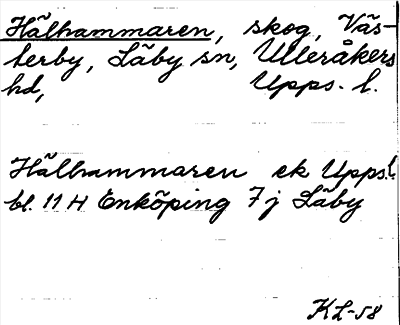 Hålhammaren, skog, Väs-
terby, Läby sn, Ulleråkers
hd, Upps. l.
Hålhammaren ek Upps. l.
bl. 11 H Enköping 7 j Läby
KL-58